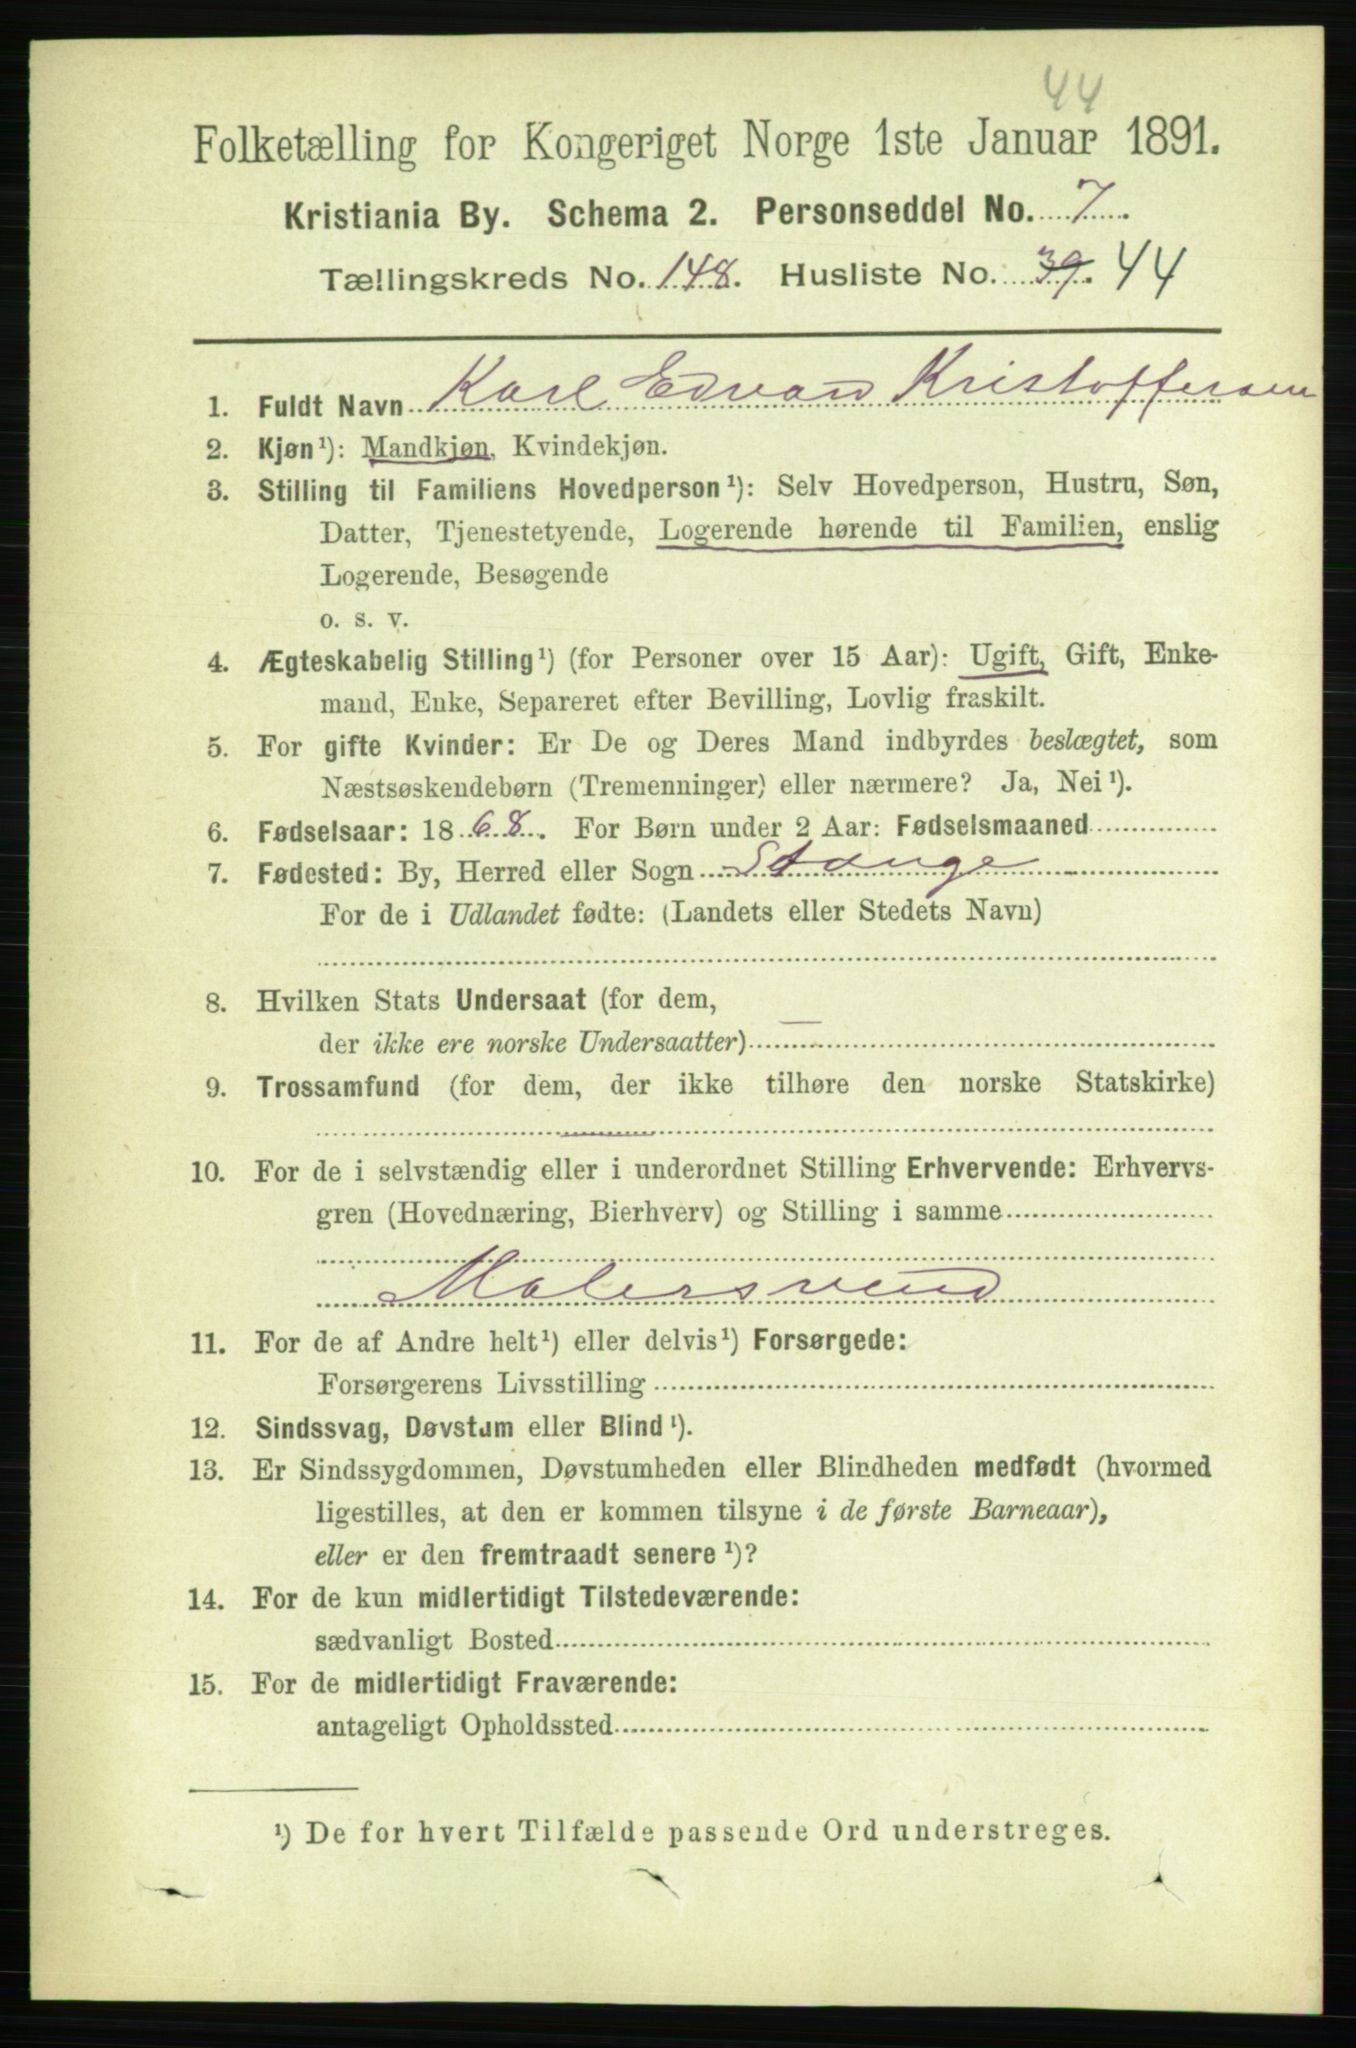 44
Folketælling for Kongeriget Norge 1ste Januar 1891.
Kristiania By. Schema 2. Personseddel No. 7.
Tællingskreds No. 148. Husliste No. 39. 44
1. Fuldt Navn Karl Edvard Kristoffersen
2. Kjøn¹): Mandkjøn, Kvindekjøn.
3. Stilling til Familiens Hovedperson¹): Selv Hovedperson, Hustru, Søn,
Datter, Tjenestetyende, Logerende hørende til Familien, enslig
Logerende, Besøgende
o. s. v.
4. Ægteskabelig Stilling¹) (for Personer over 15 Aar): Ugift, Gift, Enke-
mand, Enke, Separeret efter Bevilling, Lovlig fraskilt.
5. For gifte Kvinder: Er De og Deres Mand indbyrdes beslægtet, som
Næstsøskendebørn (Tremenninger) eller nærmere? Ja, Nei¹).
6. Fødselsaar: 1868. For Børn under 2 Aar: Fødselsmaaned
7. Fødested: By, Herred eller Sogn Stange
For de i Udlandet fødte: (Landets eller Stedets Navn)
8. Hvilken Stats Undersaat (for dem,
der ikke ere norske Undersaatter)
9. Trossamfund (for dem, der ikke tilhøre den norske Statskirke)
10. For de i selvstændig eller i underordnet Stilling Erhvervende: Erhvervs-
gren (Hovednæring, Bierhverv) og Stilling i samme
Malersvend
11. For de af Andre helt¹) eller delvis¹) Forsørgede:
Forsørgerens Livsstilling
12. Sindssvag, Døvstum eller Blind¹).
13. Er Sindssygdommen, Døvstumheden eller Blindheden medfødt (hvormed
ligestilles, at den er kommen tilsyne i de første Barneaar),
eller er den fremtraadt senere¹)?
14. For de kun midlertidigt Tilstedeværende:
sædvanligt Bosted
15. For de midlertidigt Fraværende:
antageligt Opholdssted
¹) De for hvert Tilfælde passende Ord understreges.